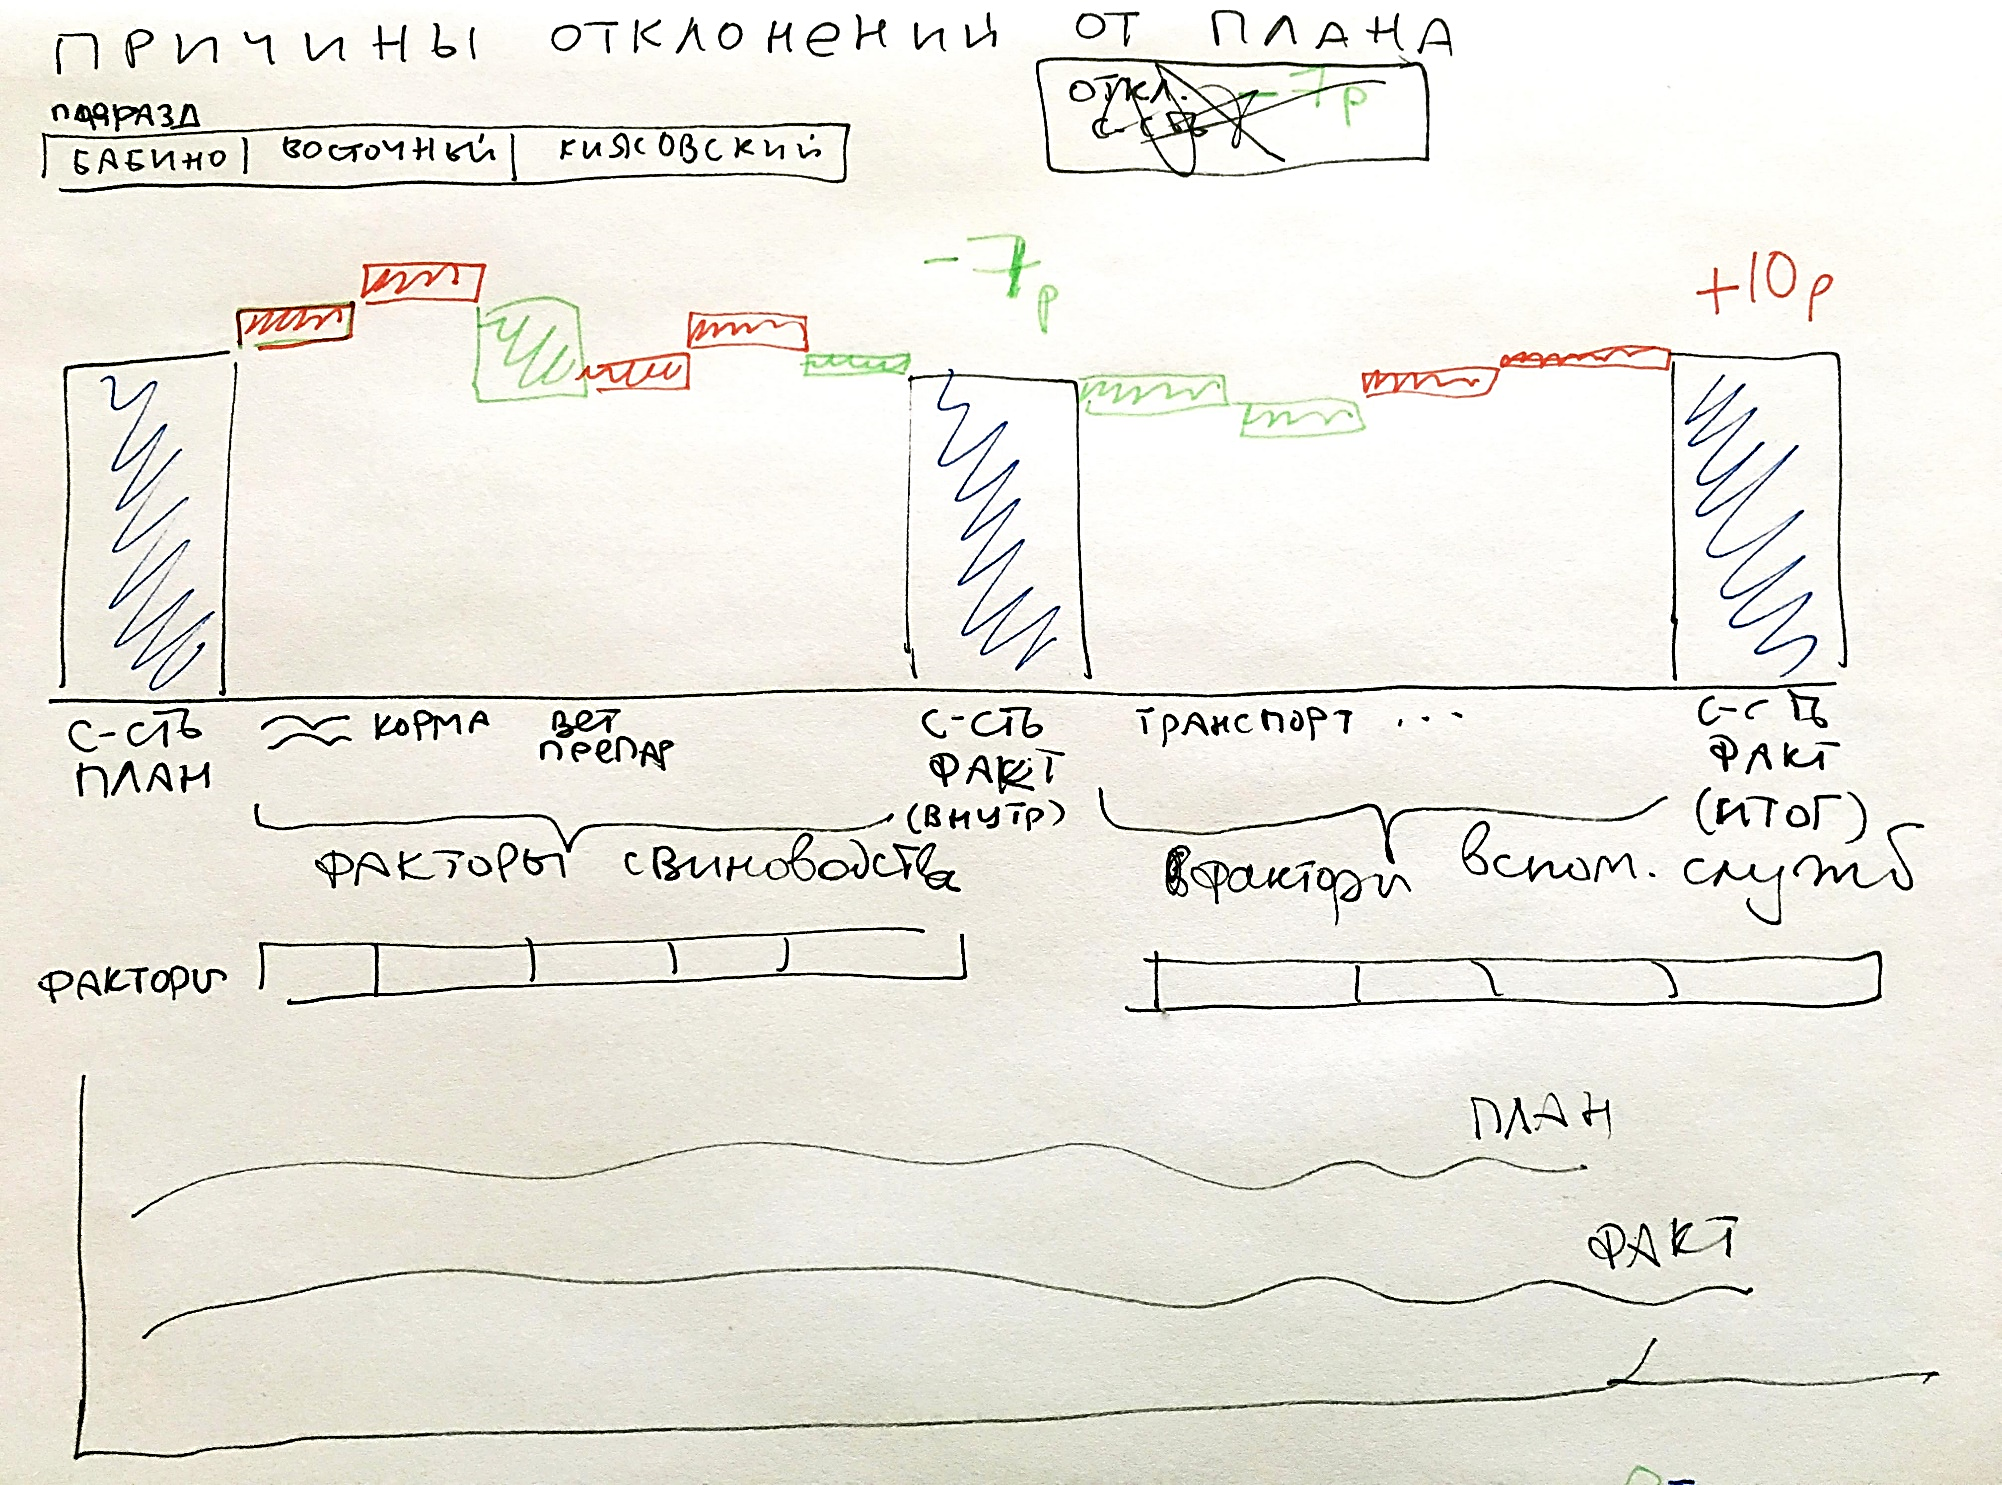 ПРИЧИНЫ ОТКЛОНЕНИЙ ОТ ПЛАНА
ОТКЛ. -7р
С-СТЬ
ПОДРАЗД
БАБИНО ВОСТОЧНЫЙ КИЯСОВСКИЙ
-7р
+10р
С-СТЬ ПЛАН
КОРМА
ВЕТ ПРЕПАР
С-СТЬ ФАКТ (ВНУТР)
ТРАНСПОРТ ...
С-СТЬ ФАКТ (ИТОГ)
ФАКТОРЫ СВИНОВОДСТВА
факторы вспом. служб
ФАКТОРЫ
ПЛАН
ФАКТ